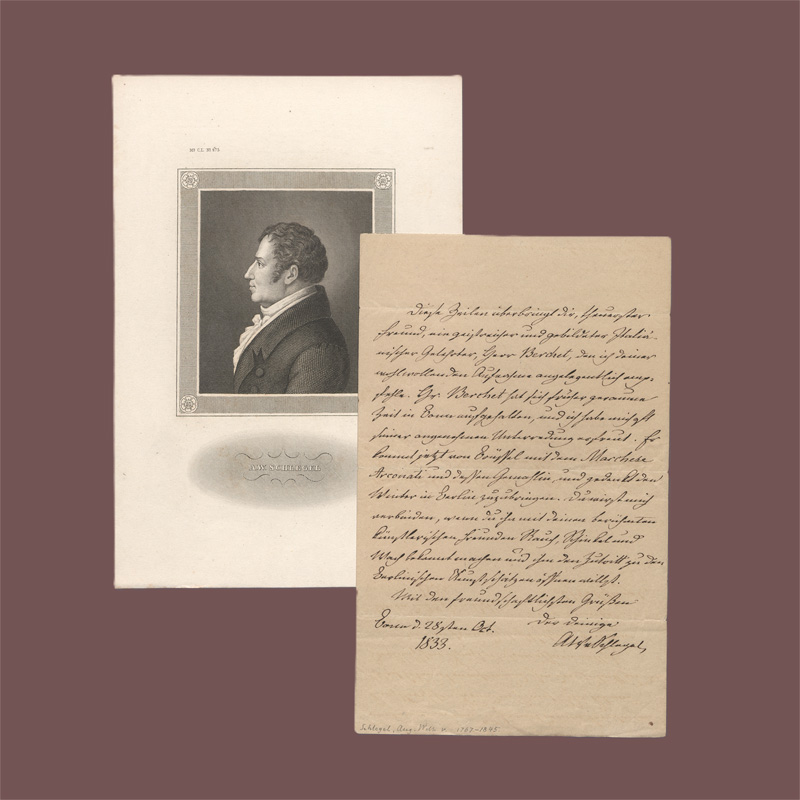 A.W. SCHLEGEL
Diese Zeilen überbringt dir, theuerster
Freund, ein geistreicher und gebildeter Italiä-
nischer Gelehrter, Herr Berchet, den ich deiner
wohlwollenden Aufnahme angelegentlich emp-
fehle. Hr. Berchet hat sich früher geraume
Zeit in Bonn aufgehalten, und ich habe mich oft
seiner angenehmen Unterredung erfreut. Er
kommt jetzt von Brüssel mit dem Marchese
Arconati und dessen Gemahlin, und gedenkt den
Winter in Berlin zuzubringen. Du wirst mich
verbinden, wenn du ihn mit deinen berühmten
künstlerischen Freunden Rauch, Schinkel und
Wach bekannt machen und ihm den Zutritt zu den
Berlinischen Kunstschätzen öffnen willst.
Mit den freundschaftlichsten Grüßen
Bonn d. 28sten Oct. der deinige
1833. AWvSchlegel
Schlegel, Aug. Wilh. v. 1767-1845